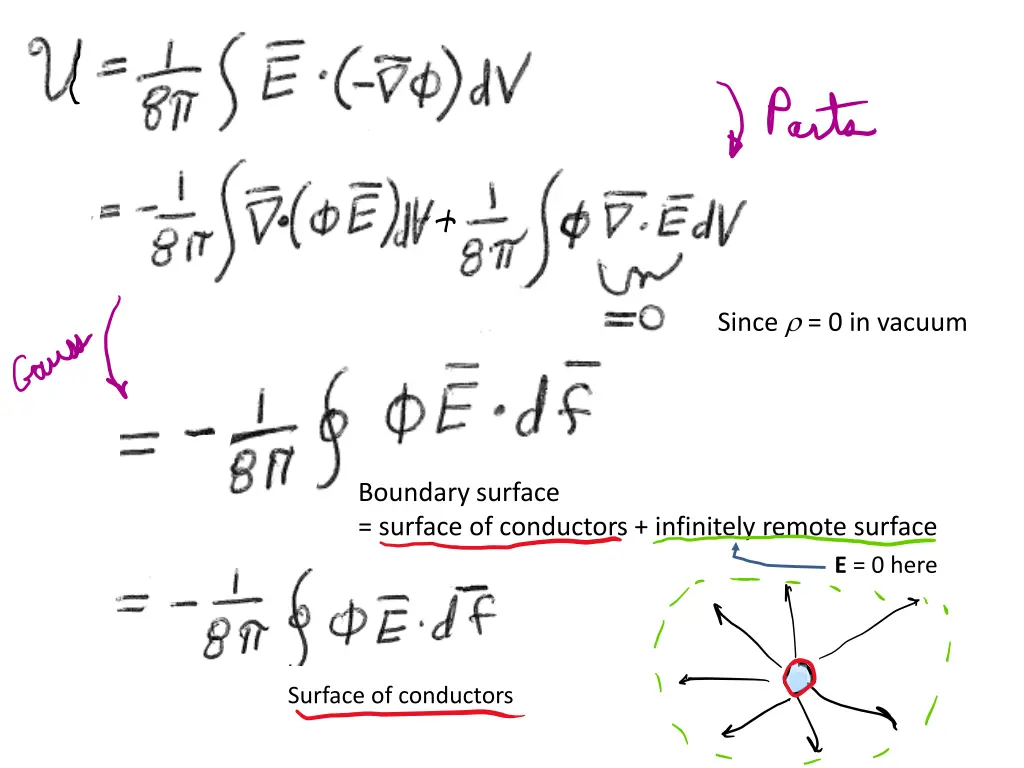 𝒰 = 1/8π ∫ E̅ · (−∇̅ϕ) dV
Parts
= − 1/8π ∫ ∇̅·(ϕE̅) dV + 1/8π ∫ ϕ ∇̅·E̅ dV
=0
Since ρ = 0 in vacuum
Gauss
= − 1/8π ∮ ϕE̅ · df̅
Boundary surface
= surface of conductors + infinitely remote surface
E = 0 here
= − 1/8π ∮ ϕE̅ · df̅
Surface of conductors